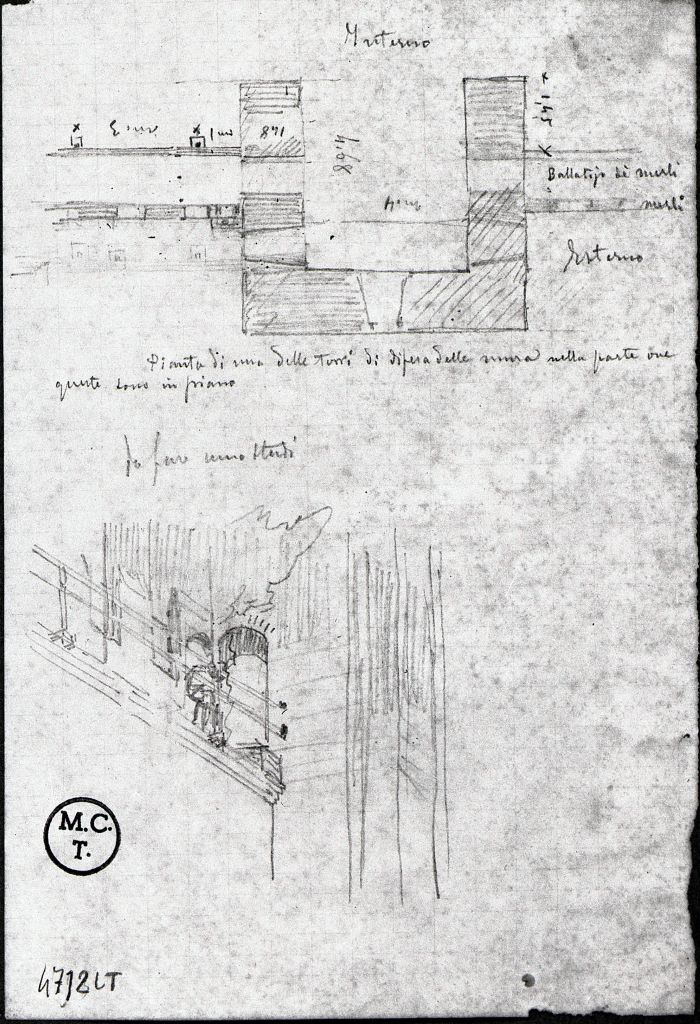 Interno
1,43
1,48
4,68
Ballatojo dei merli
merli
Esterno
Pianta di una delle torri di difesa delle mura nella parte ove
queste sono in piano
Da fare
M.C.
T.
4712LT